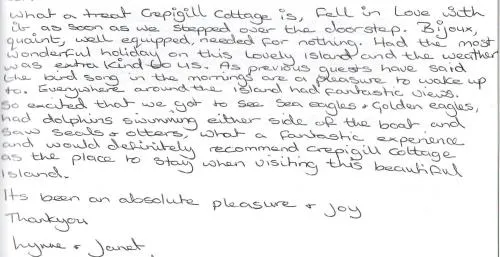 what a treat Crepigill Cottage is, fell in Love with
it as soon as we stepped over the doorstep. Bijoux,
quaint, well equipped, needed for nothing. Had the most
wonderful holiday on this Lovely Island and the weather
was extra kind to us. As previous guests have said
the bird song in the mornings are a pleasure to wake up
to. Everywhere around the island had fantastic views.
so excited that we got to see Sea eagles & Golden eagles,
had dolphins swimming either side of the boat and
saw seals & otters. what a fantastic experience
and would definitely recommend crepigill cottage
as the place to stay when visiting this beautiful
Island.
Its been an absolute pleasure & Joy
Thankyou
Lynne & Janet.